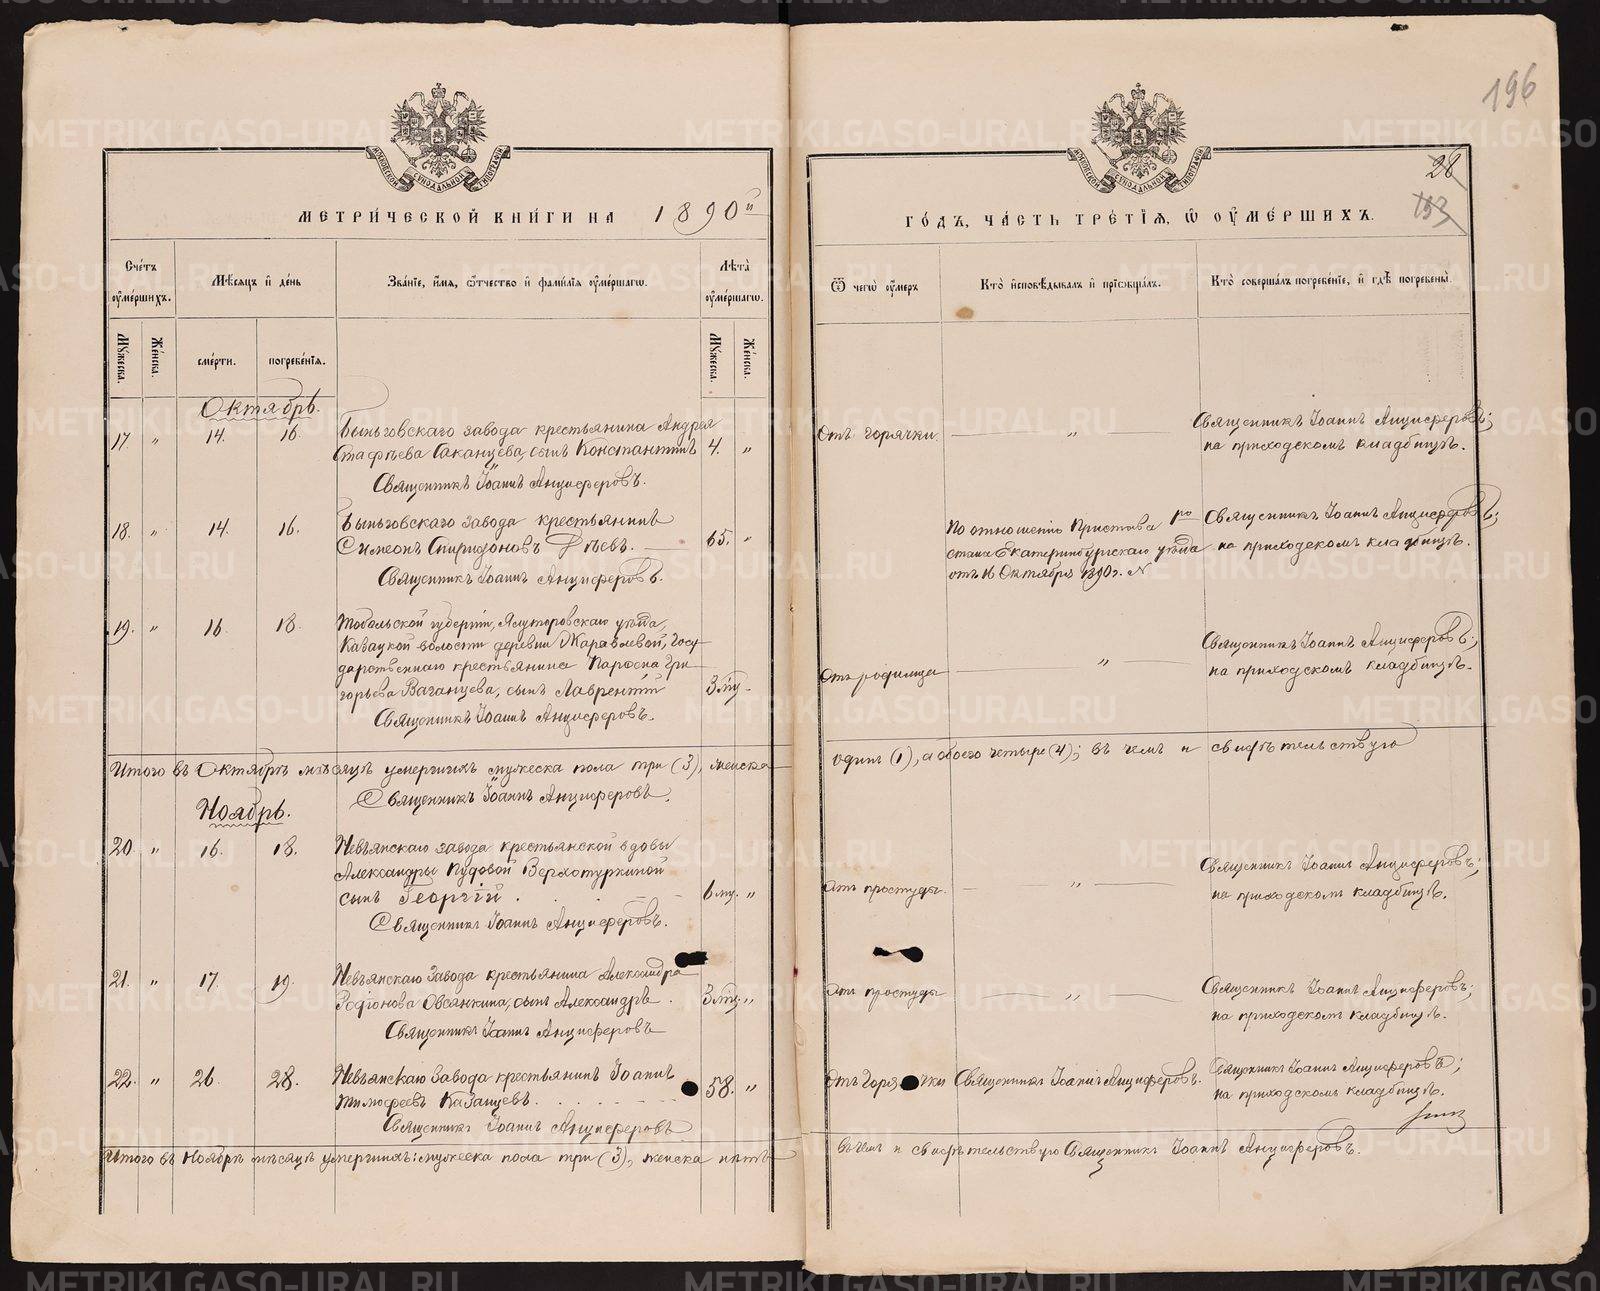 196
28
153
МЕТРИ́ЧЕСКОЙ КНИ́ГИ НА 1890й
ГО́ДЪ, ЧА́СТЬ ТРЕ́ТІѦ, Ѡ ОУМЕ́РШИХЪ.
Сче́тъ оумершихъ.
Мѣсяцъ и день
Зва́ніе, имя, отчество и фамилія оумершагѡ.
Лѣта оумершагѡ.
Мужеска.
Женска.
смерти.
погребенія.
Мужеска.
Женска.
Ѿ чегѡ оумеръ
Кто исповѣдывалъ и пріобщалъ.
Кто совершалъ погребеніе, и гдѣ погребены.
Октябрь.
17. " 14. 16. Быньговскаго завода крестьянина Андрея
Стафѣева Саканцева, сынъ Константинъ 4. "
Священникъ Іоаннъ Анциферовъ.
Отъ горячки "
Священникъ Іоаннъ Анциферовъ;
на приходскомъ кладбищѣ.
18. " 14. 16. Быньговскаго завода крестьянинъ
Симеонъ Спиридоновъ 65. "
Священникъ Іоаннъ Анциферовъ.
По отношенію Пристава 1го
стана Екатеринбургскаго уѣзда
отъ 16 Октября 1890 г. N
Священникъ Іоаннъ Анциферовъ;
на приходскомъ кладбищѣ.
19. " 16. 18. Тобольской губерніи, Ялуторовскаго уѣзда,
волости деревни Жаравлевой, Госу-
дарственнаго крестьянина Гри-
горьева Ваганцева, сынъ Лаврентій 3 мц.
Священникъ Іоаннъ Анциферовъ.
Отъ родимца "
Священникъ Іоаннъ Анциферовъ;
на приходскомъ кладбищѣ.
Итого въ Октябрѣ мѣсяцѣ умершихъ мужеска пола три (3), женска
одинъ (1), а обоего четыре (4); въ чемъ и свидѣтельствую
Священникъ Іоаннъ Анциферовъ.
Ноябрь.
20. " 16. 18. Невьянскаго завода крестьянской вдовы
Александры Пудовой Верхотуркиной
сынъ Георгій. 6 мц. "
Священникъ Іоаннъ Анциферовъ.
Отъ простуды. "
Священникъ Іоаннъ Анциферовъ;
на приходскомъ кладбищѣ.
21. " 17. 19. Невьянскаго завода крестьянина Александра
Родіонова Овсянкина, сынъ Александръ. 3 мц. "
Священникъ Іоаннъ Анциферовъ
Отъ простуды "
Священникъ Іоаннъ Анциферовъ;
на приходскомъ кладбищѣ.
22. " 26. 28. Невьянскаго завода крестьянинъ Іоаннъ
Тимофеевъ Казанцевъ. 58. "
Священникъ Іоаннъ Анциферовъ
Отъ горячки
Священникъ Іоаннъ Анциферовъ.
Священникъ Іоаннъ Анциферовъ;
на приходскомъ кладбищѣ.
Итого въ Ноябрѣ мѣсяцѣ умершихъ: мужеска пола три (3), женска нѣтъ
въ чемъ и свидѣтельствую Священникъ Іоаннъ Анциферовъ.
METRIKI.GASO-URAL.RU